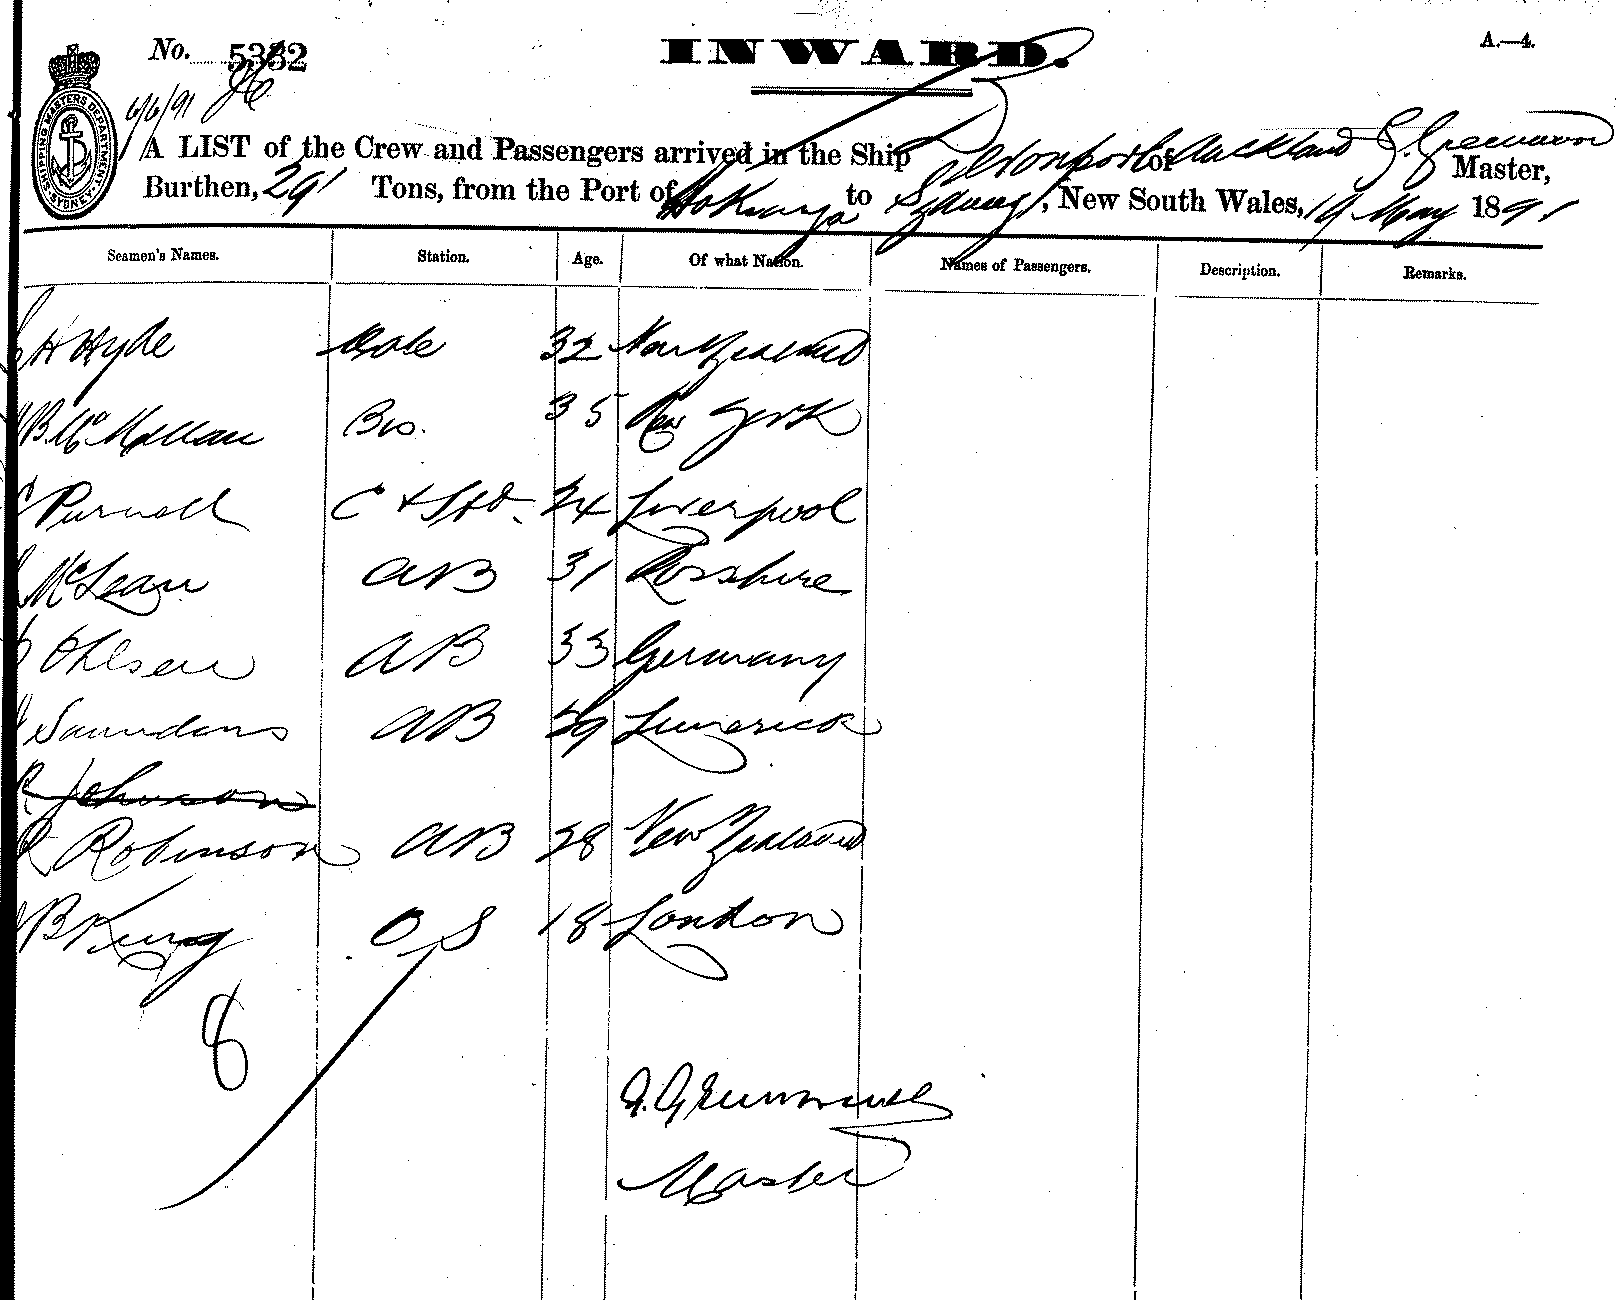 No. 5382
INWARD.
A.—4.
SHIPPING MASTERS DEPARTMENT. SYDNEY.
6/6/91
A LIST of the Crew and Passengers arrived in the Ship Devonport of Auckland Master,
Burthen, 291 Tons, from the Port of Hokianga to Sydney, New South Wales, 19 May 1891
Seamen's Names. Station. Age. Of what Nation. Names of Passengers. Description. Remarks.
H Hyde Mate 32 New Zealand
B. McMillan Bo. 35 New York
Purnell C & Std. 24 Liverpool
McLean AB 31 Rosshire
Ohlsen AB 33 Germany
Saunders AB 29 Limerick
R. Johnson
R Robinson AB 28 New Zealand
B King OS 18 London
8
Master